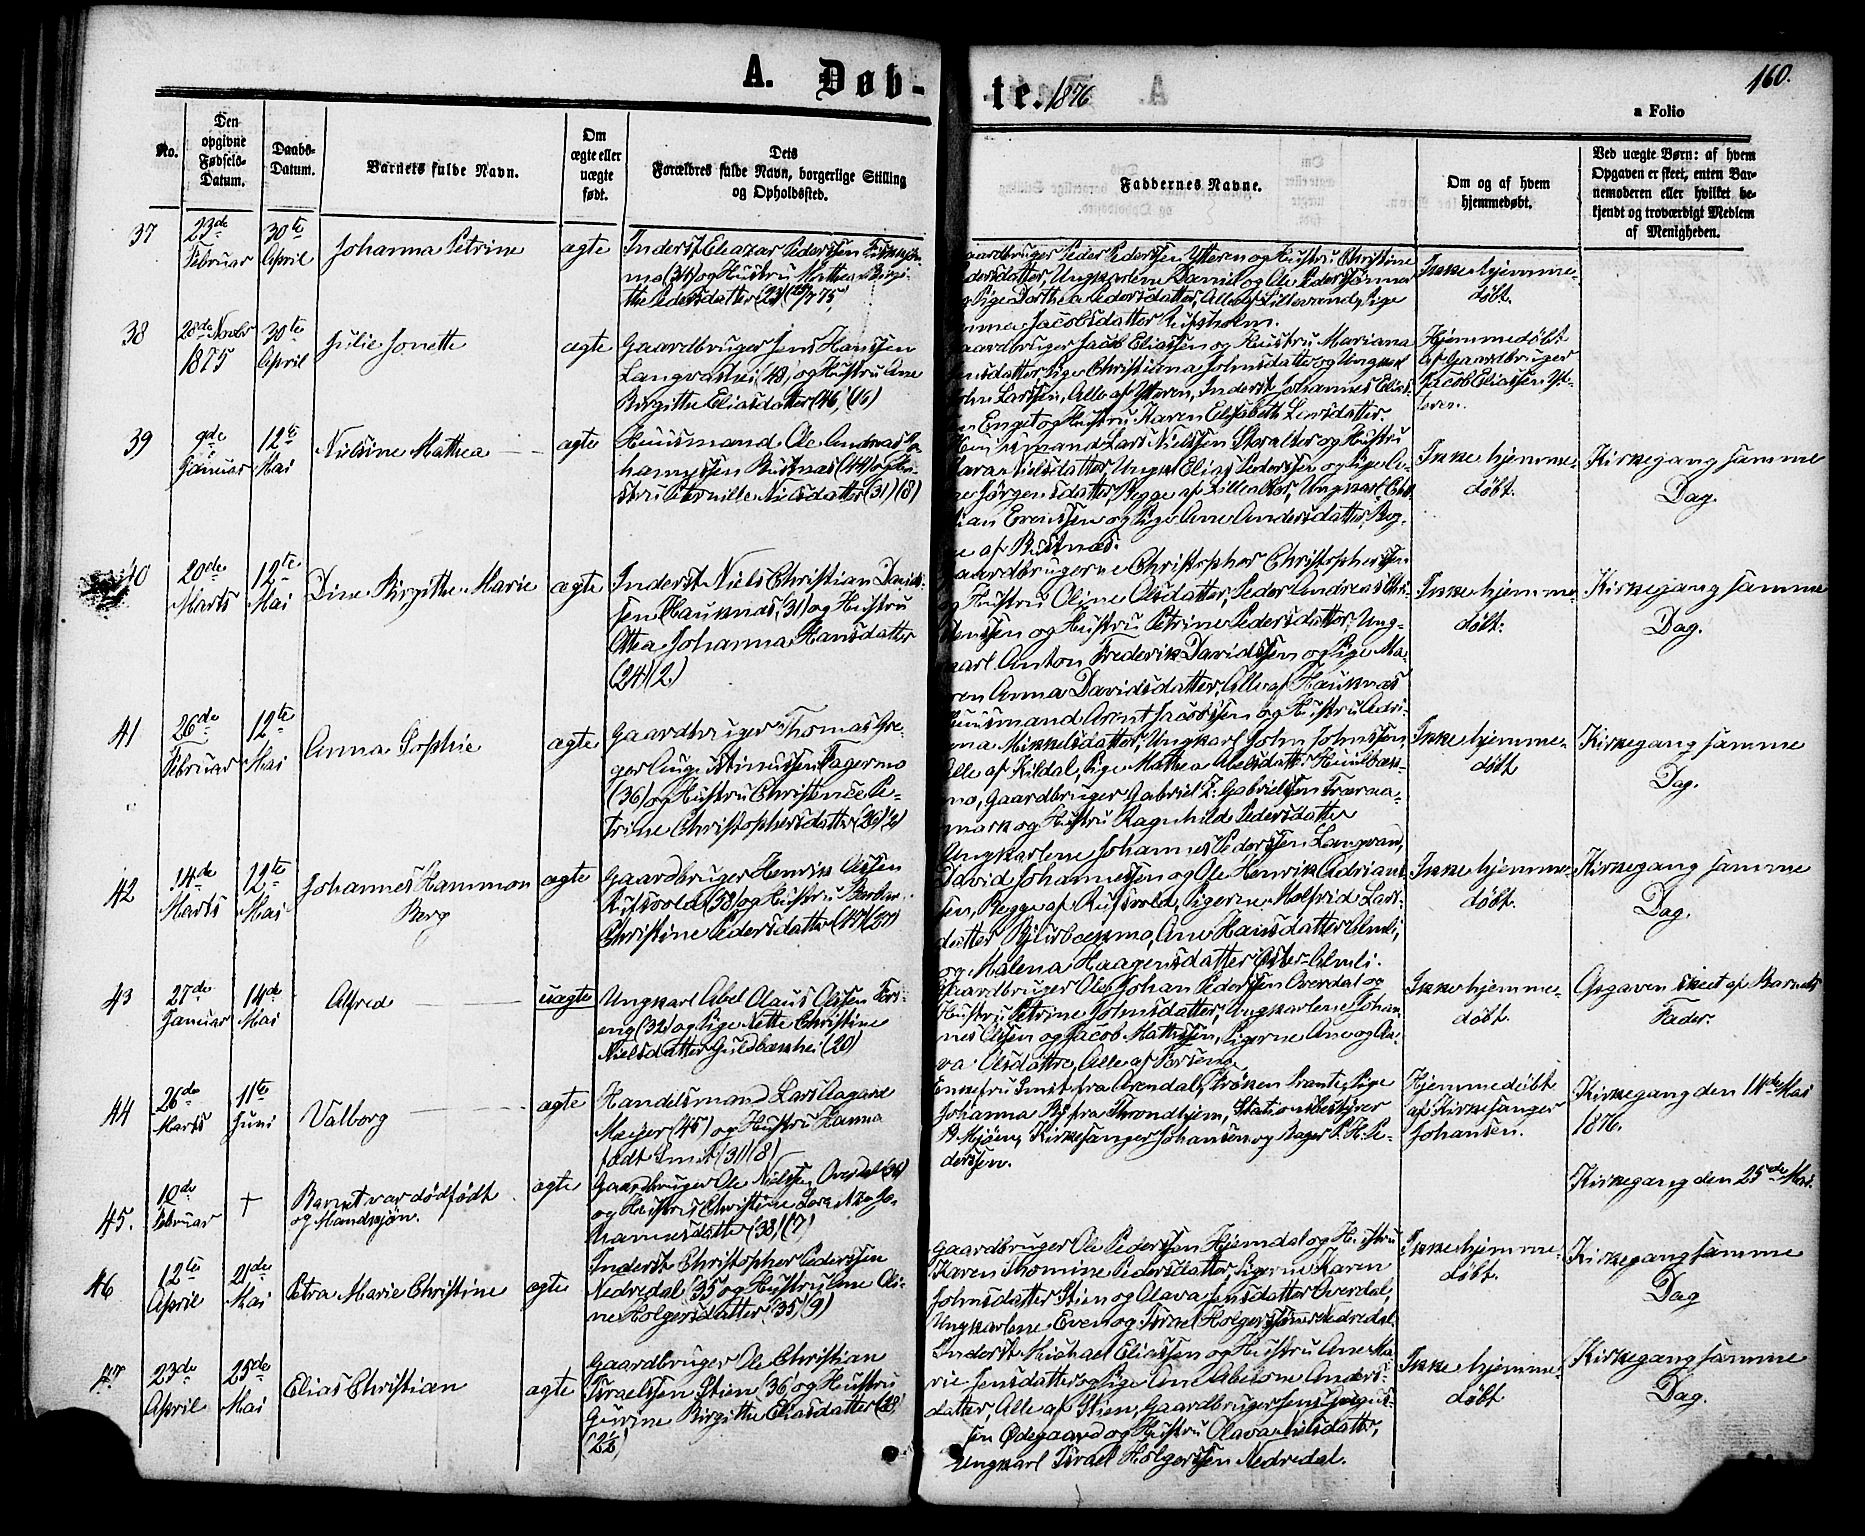 A. Døb-
te. 1876
160.
a Folio
No.
Den
opgivne
Fødsels-
Datum.
Daabs-
Datum.
Barnets fulde Navn.
Om
ægte eller
uægte
født.
Dets
Forældres fulde Navn, borgerlige Stilling
og Opholdssted.
Faddernes Navne.
Om og af hvem
hjemmedøbt.
Ved uægte Børn: af hvem
Opgaven er skeet, enten Bar-
nemoderen eller hvilket be-
kjendt og troværdigt Medlem
af Menigheden.
37
23de
Februar
30te
April
Johanna Petrine
ægte
Inderst Eleazar Pederssen
mo (34) og Hustru Mathea Birgi-
the Pedersdatter (23)
aardbruger Peder Pederssen Ytteren og Hustru Christine
edersdatter, Ungkarlene Daniel og Ole Pederssønner
og Pige Dorthea Pedersdatter, Alle af Lillevand, Pige
nna Jacobsdatter
Ikke hjemme-
døbt.
38
28de Novbr
1875
30te
April
Julie Jonette
ægte
Gaardbruger Jens Hanssen
Langvashei (48) og Hustru Ane
Birgithe Eliasdatter (46) (16)
aardbruger Jacob Eliassen og Hustru Mariana
ensdatter, Pige Christiana Johnsdatter og Ungkarl
John Larssen, Alle af Ytteren, Inderst Johannes Elias-
en Enget og Hustru Karen Elisabeth Larsdatter
Hjemmedøbt
af Gaardbruger
Jacob Eliassen Yt-
teren.
39
9de
Januar
12te
Mai
Nielsine Mathea
ægte
Huusmand Ole Andreas Jo-
hannessen Bustnæs (44) og Hu-
stru Pernille Nielsdatter (31) (8)
Huusmand Lars Nielssen Storalter og Hustru
Maren Nielsdatter, Ungk. Elias Pederssen og Pige A-
ne Jørgensdatter, Begge af Lillealter, Ungkarl Chri-
stian Evenssen og Pige Ane Andersdatter, Beg-
ge af Bustnæs.
Ikke hjemme-
døbt.
Kirkegang samme
Dag.
40
20de
Marts
12te
Mai
Dine Birgithe Marie
ægte
Inderst Niels Christian Davids-
sen Hauknæs (31) og Hustru
Othea Johanna Hansdatter
(24) (2)
aardbrugerne Christopher Christopherssen
og Hustru Oline Olsdatter, Peder Andreas Chri-
stenssen og Hustru Petrine Pedersdatter, Ung-
karl Anton Frederik Davidssen og Pige Ma-
ren Anna Davidsdatter, Alle af Hauknæs
Ikke hjemme-
døbt.
Kirkegang samme
Dag.
41
26de
Februar
12te
Mai
Anna Sophie
ægte
Gaardbruger Thomas Gre-
ger Augustinussen Fagermo
(36) og Hustru Christence Pe-
trine Christophersdatter (26) (2)
Huusmand Arnt Jacobssen og Hustru Adri-
ana Mikkelsdatter, Ungkarl John Johnssen,
Alle af Kildal, Pige Mathea Abelsdatter
mo, Gaardbruger Gabriel Z. Gabrielssen
mark og Hustru Ragnhilde Pedersdatter
Ikke hjemme-
døbt
Kirkegang samme
Dag.
42
14de
Marts
12te
Mai
Johannes Hammon
Berg
ægte
Gaardbruger Henrik Olssen
Rufsvold (38) og Hustru
Christine Pedersdatter (47)
Ungkarlene Johannes Pederssen Langvan,
David Johannessen og Ole Henrik Adrians-
sen, Begge af Rufsvold, Pigerne Molfrid Lars-
datter Bjurbækmo, Ane Hansdatter Almli,
og Malena Haagensdatter Øster-Almli.
Ikke hjemme-
døbt.
Kirkegang samme
Dag.
43
27de
Januar
14de
Mai
Alfred
uægte
Ungkarl Abel Olaus Olssen Fors-
eng (32) og Pige Nette Christine
Nielsdatter Guldbækhei (20)
Gaardbruger Ole Johan Pederssen Overdal og
Hustru Petrine Johnsdatter, Ungkarlene Johan-
nes Olssen og Jacob Mathissen, Pigerne Ane og Ola-
va Olsdattre, Alle af Forseng
Ikke hjemme-
døbt.
Opgaven skeet af Barnets
Fader.
44
26de
Marts
11te
Juni
Valborg
ægte
Handelsmand Lars Aagaard
Meyer (45) og Hustru Hanna
født Smit (31) (8)
Enkefru Smit fra Arendal, Frøken Prante, Pige
Johanna By fra Throndhjem, Stationsbestyrer
B. Mjøen, Kirkesanger Johansen og Bager P. H. Pe-
derssen.
Hjemmedøbt
af Kirkesanger
Johansen.
Kirkegang den 14de Mai
1876.
45.
10de
Februar
+
Barnet var dødfødt
og Mandkjøn.
ægte
Gaardbruger Ole Nielssen Overdal (36)
og Hustru Christine Lorentze Jo-
hannesdatter (38) (7)
Kirkegang den 25de Mai.
46
12te
April
21de
Mai
Petra Marie Christine
ægte
Inderst Christopher Pederssen
Nedredal (35) og Hustru Ane Oli-
ne Holgersdatter (35) (9)
Gaardbruger Ole Pederssen Hjemdal og Hustru
Karen Thomine Pedersdatter, Pigerne Karen
Johnsdatter Stien og Olava Jensdatter Overdal,
Ungkarlene Even og Israel Holgerssønner Nedredal.
Ikke hjemme-
døbt.
Kirkegang samme
Dag
47
23de
April
25de
Mai
Elias Christian
ægte
Gaardbruger Ole Christian
Israelssen Stien (36) og Hustru
Gurine Birgithe Eliasdatter (28)
(2½)
Inderst Michael Eliassen og Hustru Ane Ma-
rie Jensdatter og Pige Ane Abelone Anders-
datter, Alle af Stien, Gaardbruger Jens
sen Ødegaard og Hustru Olava Nilsdatter,
Ungkarl Israel Holgerssen Nedredal.
Ikke hjemme-
døbt
Kirkegang samme
Dag.